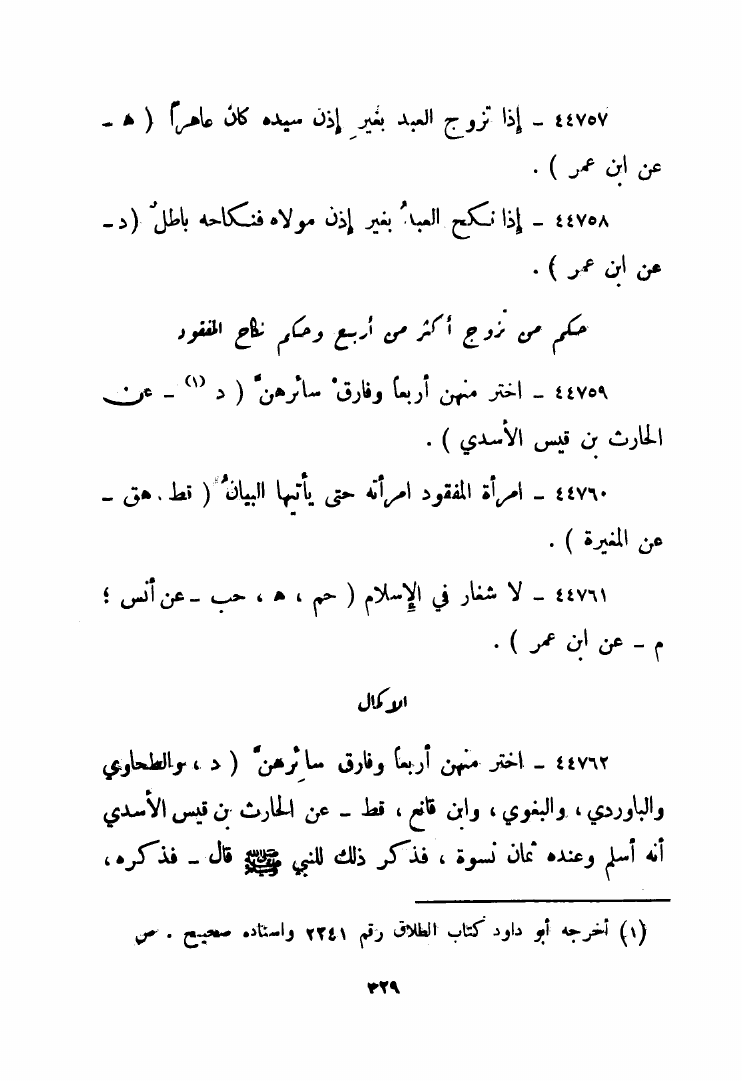 ٤٤٧٥٧ ـ إذا تزوج العبد بغيرِ إذن سيده كان عاهراً ( ه ـ
عن ابن عمر ) .
٤٤٧٥٨ ـ إذا نكح العبدُ بغير إذن مولاه فنكاحه باطلٌ (د ـ
عن ابن عمر ) .
حكم من تزوج أكثر من أربع وحكم نكاح المفقود
٤٤٧٥٩ ـ اختر منهن أربعاً وفارقْ سائرهنَّ ( د (١) ـ عن
الحارث بن قيس الأسدي ) .
٤٤٧٦٠ ـ امرأة المفقود امرأته حتى يأتيها البيانُ ( قط . هق ـ
عن المغيرة ) .
٤٤٧٦١ ـ لا شغار في الإسلام ( حم ، ه ، حب ـ عن أنس ؛
م ـ عن ابن عمر ) .
الاكمال
٤٤٧٦٢ ـ اختر منهن أربعاً وفارق سائرهنَّ ( د ، والطحاوي
والباوردي ، والبغوي ، وابن قانع ، قط ـ عن الحارث بن قيس الأسدي
أنه أسلم وعنده ثمان نسوة ، فذكر ذلك للنبي ﷺ قال ـ فذكره ،
(١) أخرجه أبو داود كتاب الطلاق رقم ٢٢٤١ واسناده صحيح . ص
٣٢٩